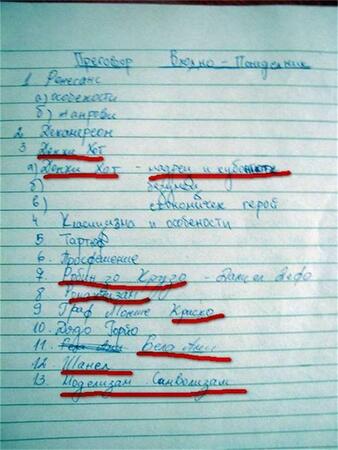 Преговор Входно - Понеделник
1 Ренесанс
а) особености
б) жанрове
2 Декамерон
3 Донки Хот
а) Донки Хот -
б) безумен
в) герой
4 Класицизма и особености
5 Тартюф
6. Просвещение
7. Робин зо Крузо Даниел Дефо
8 Романтизам
9 Граф Монте Криско
10. Дядо Горио
11. Бела Ани
12 Шанел
13. Моделизам Символизам